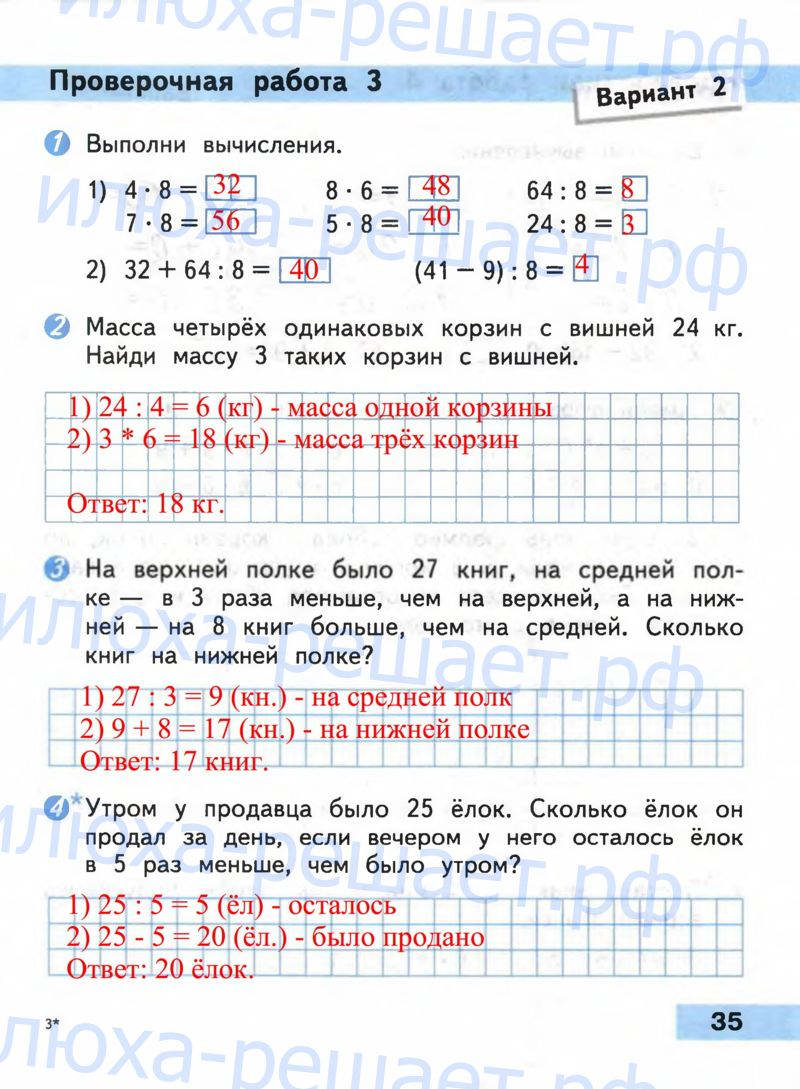 илюха-решает.рф
Проверочная работа 3
Вариант 2
1 Выполни вычисления.
1) 4 · 8 = 32 8 · 6 = 48 64 : 8 = 8
7 · 8 = 56 5 · 8 = 40 24 : 8 = 3
илюха-решает.рф
2) 32 + 64 : 8 = 40 (41 − 9) : 8 = 4
2 Масса четырёх одинаковых корзин с вишней 24 кг.
Найди массу 3 таких корзин с вишней.
1) 24 : 4 = 6 (кг) - масса одной корзины
2) 3 * 6 = 18 (кг) - масса трёх корзин
Ответ: 18 кг.
3 На верхней полке было 27 книг, на средней пол-
ке — в 3 раза меньше, чем на верхней, а на ниж-
ней — на 8 книг больше, чем на средней. Сколько
книг на нижней полке?
илюха-решает.рф
1) 27 : 3 = 9 (кн.) - на средней полк
2) 9 + 8 = 17 (кн.) - на нижней полке
Ответ: 17 книг.
4* Утром у продавца было 25 ёлок. Сколько ёлок он
продал за день, если вечером у него осталось ёлок
в 5 раз меньше, чем было утром?
илюха-решает.рф
1) 25 : 5 = 5 (ёл) - осталось
2) 25 - 5 = 20 (ёл.) - было продано
Ответ: 20 ёлок.
3*
35
илюха-решает.рф